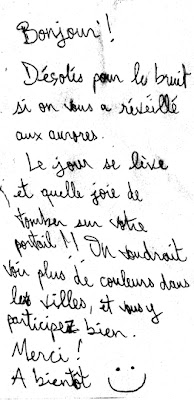 Bonjour !
Désolés pour le bruit
si on vous a réveillé
aux aurores.
Le jour se lève
et quelle joie de
tomber sur votre
portail !! On voudrait
voir plus de couleurs dans
les villes, et vous y
participez bien.
Merci !
A bientôt